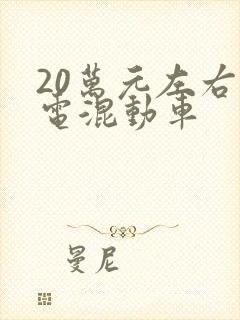 20萬元左右
電混動車
曼尼